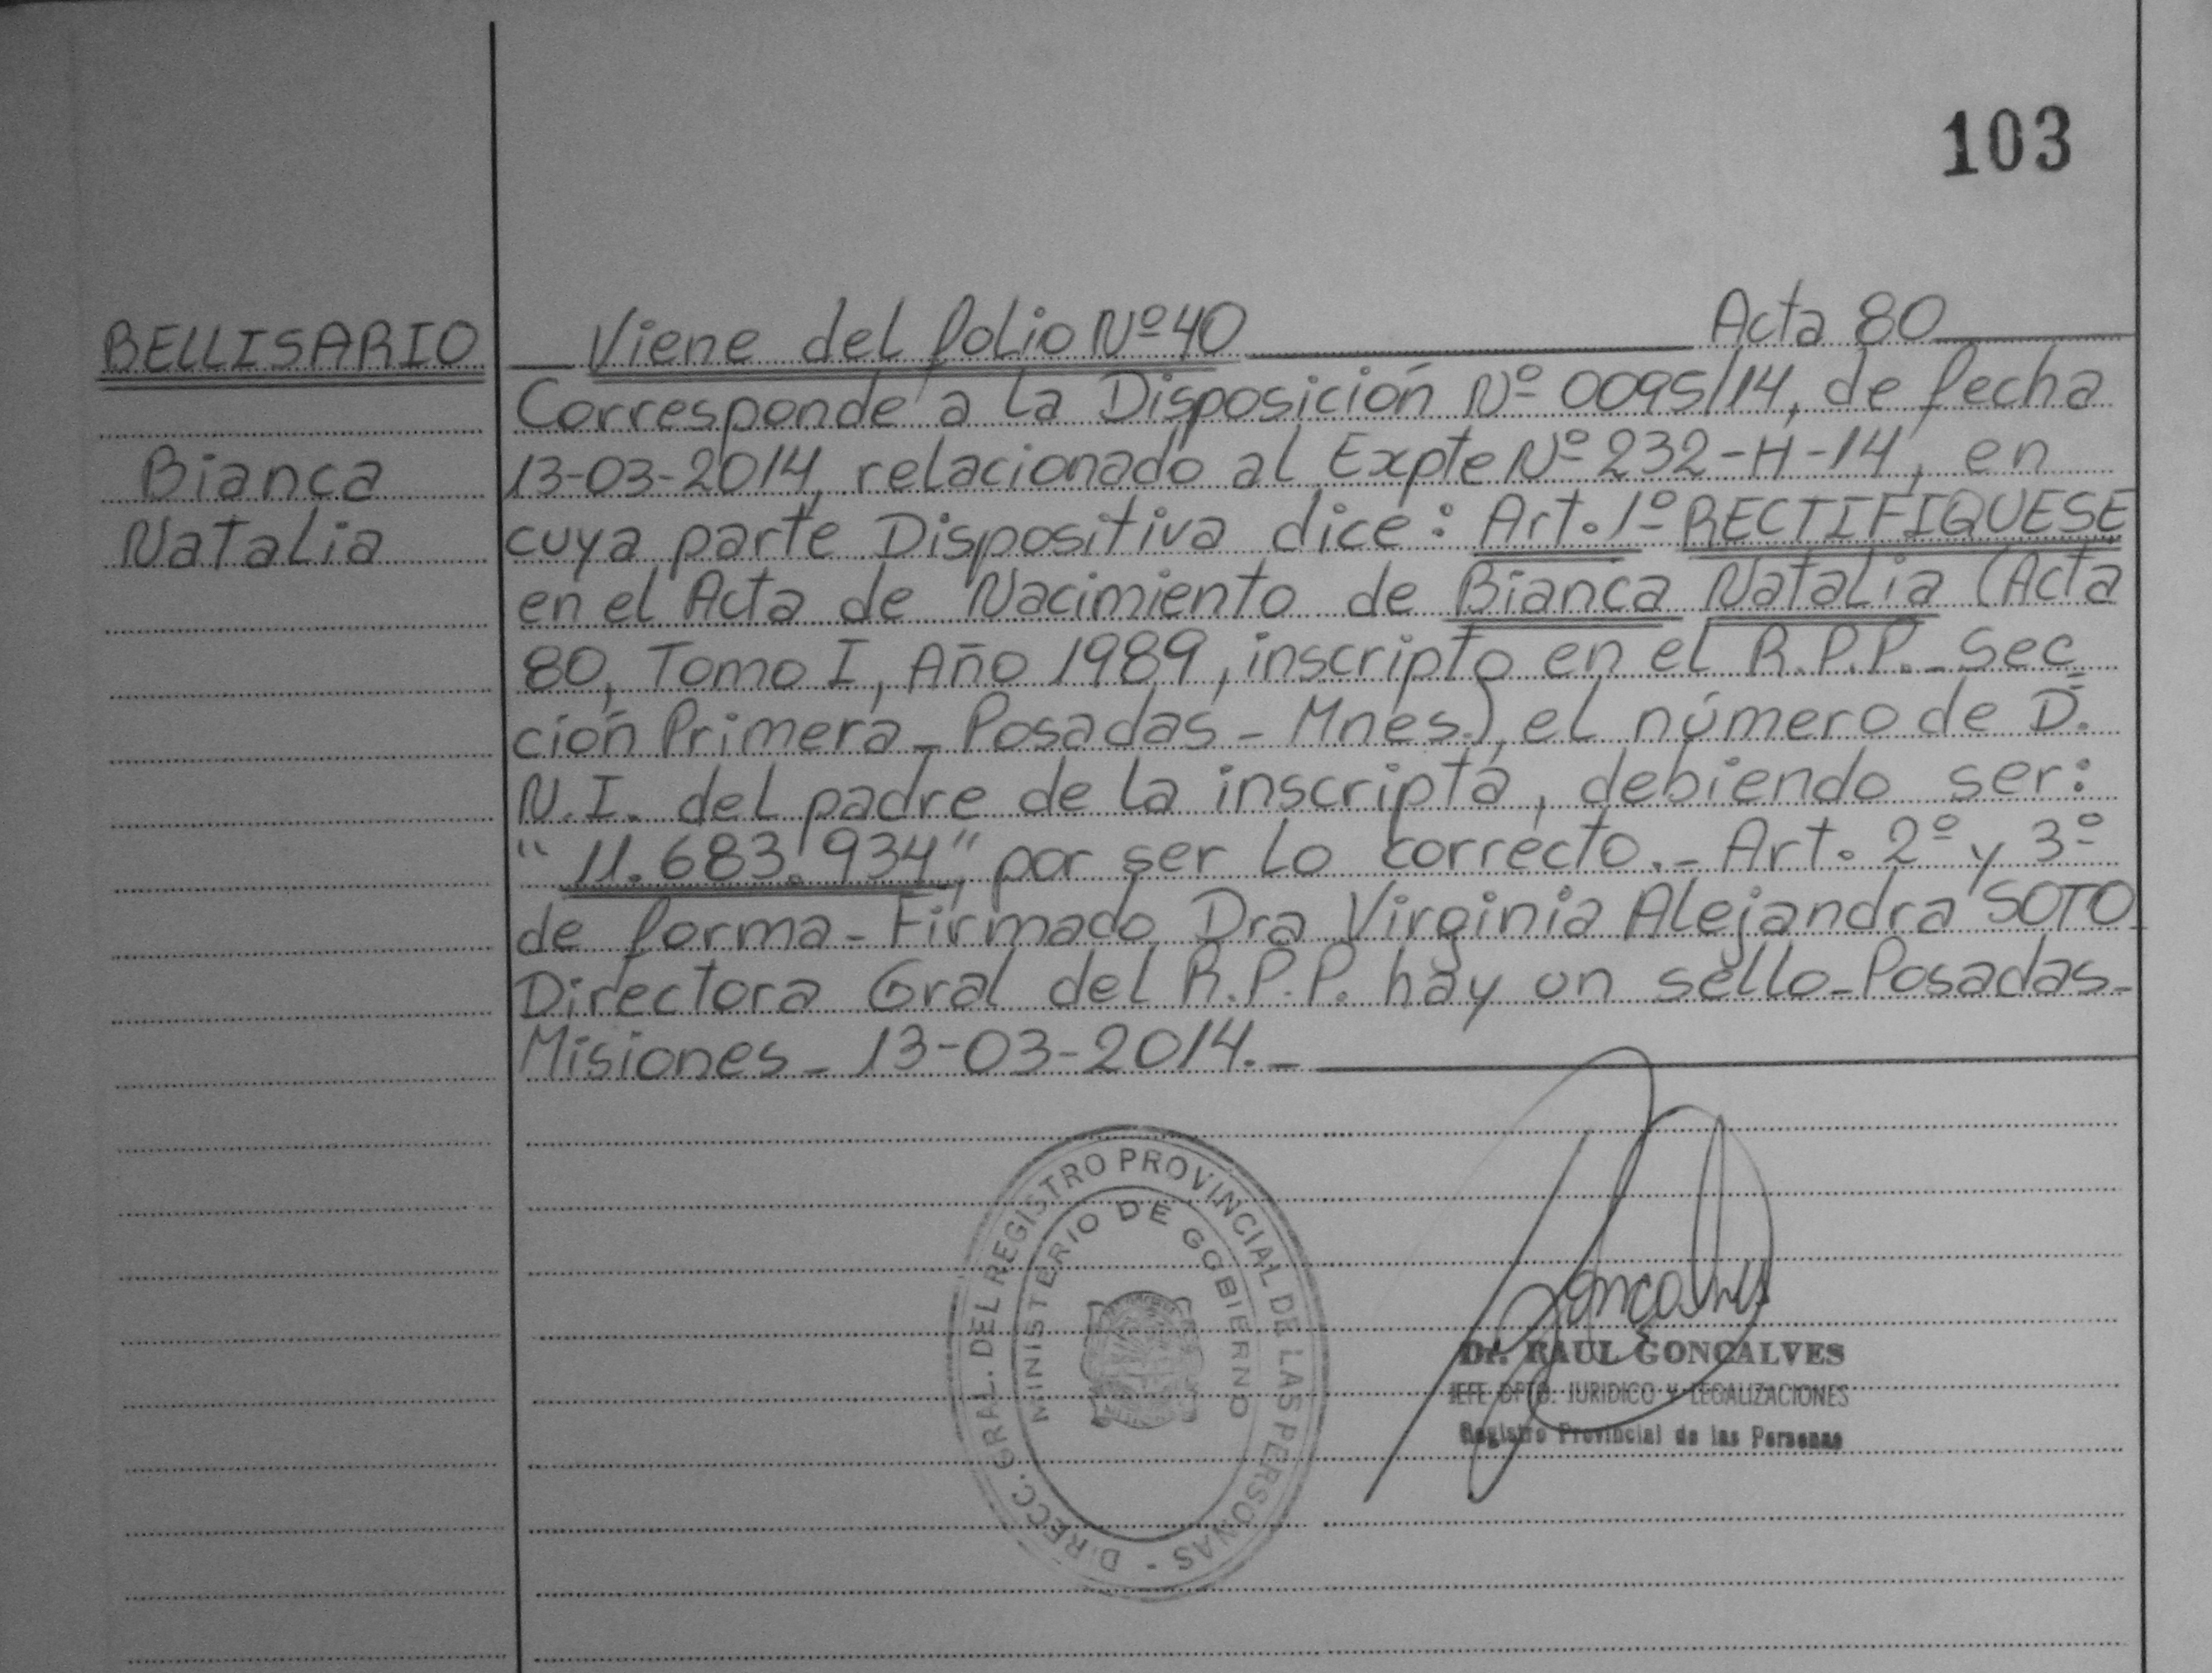 103
BELLISARIO
Bianca
Natalia
Viene del folio Nº 40 Acta 80
Corresponde a la Disposición Nº 0095/14, de fecha
13-03-2014, relacionado al Expte Nº 232-H-14, en
cuya parte Dispositiva dice: Art. 1º RECTIFIQUESE
en el Acta de Nacimiento de Bianca Natalia (Acta
80, Tomo I, Año 1989, inscripto en el R.P.P. - Sec
ción Primera - Posadas - Mnes.) el número de D.
N.I. del padre de la inscripta, debiendo ser:
"11.683.934", por ser lo correcto.- Art. 2º y 3º
de forma - Firmado Dra Virginia Alejandra SOTO
Directora Gral del R.P.P. hay un sello - Posadas -
Misiones - 13-03-2014.-
DIRECC. GRAL. DEL REGISTRO PROVINCIAL DE LAS PERSONAS -
MINISTERIO DE GOBIERNO
Goncalves
Dr. RAUL GONCALVES
JEFE DPTO. JURIDICO Y LEGALIZACIONES
Registro Provincial de las Personas